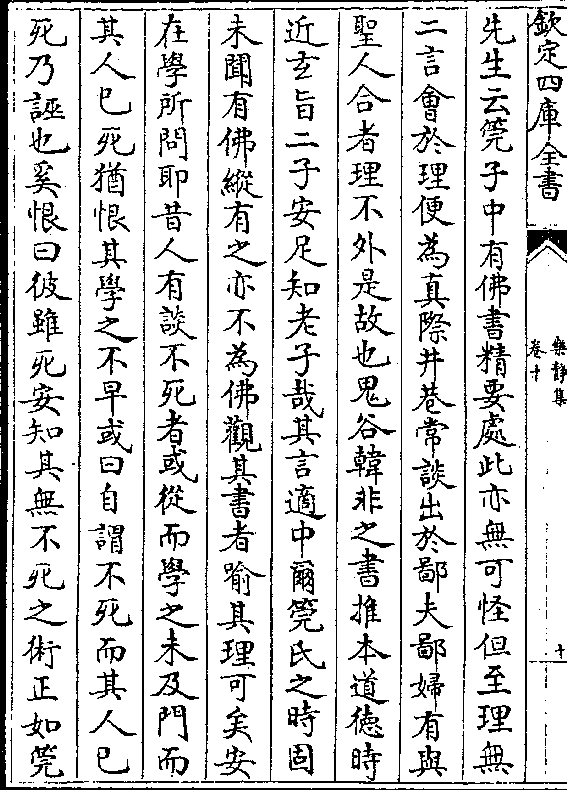 欽定四庫全書
樂靜集
卷十
十
先生云筦子中有佛書精要處此亦無可怪但至理無
二言會於理便為真際井巷常談出於鄙夫鄙婦有與
聖人合者理不外是故也鬼谷韓非之書推本道徳時
近玄旨二子安足知老子哉其言適中爾筦氏之時固
未聞有佛縱有之亦不為佛觀其書者喻其理可矣安
在學所問耶昔人有談不死者或從而學之未及門而
其人已死猶恨其學之不早或曰自謂不死而其人已
死乃誣也奚恨曰彼雖死安知其無不死之術正如筦